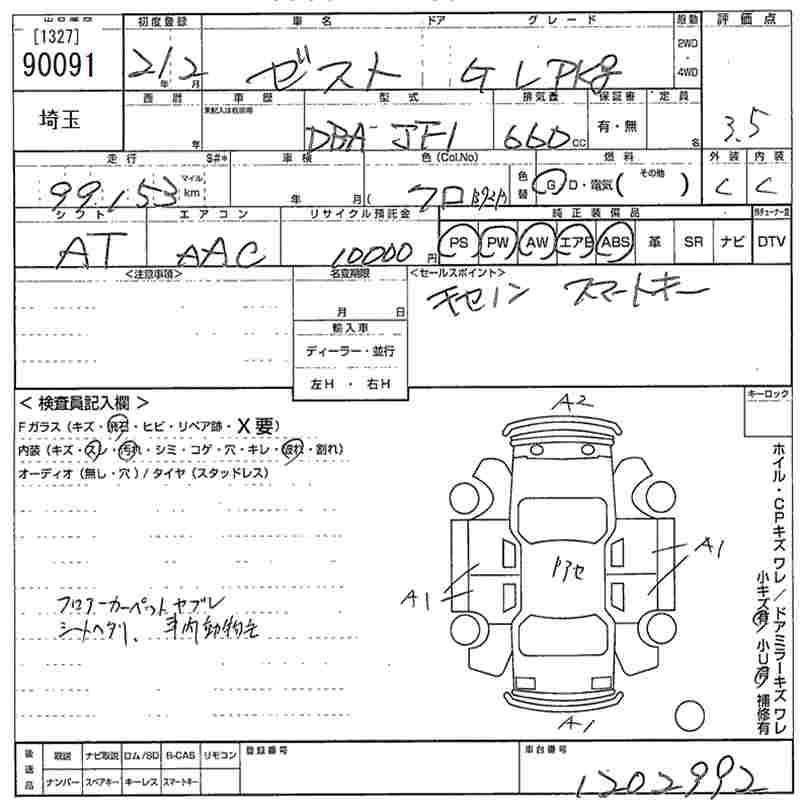 [1327]
90091
初度登録 車名 ドア グレード 原動 評価点
21年2月 ゼスト G LPKg 2WD・4WD 3.5
埼玉
西暦 車歴 型式 排気量 保証書 定員
年 未記入は自家用 DBA-JE1 660cc 有・無 名
走行 S#* 車検 色(Col.No) 燃料 外装 内装
99,153 マイル km 年 月( クロ 色替 G D・電気( その他 ) C C
シフト エアコン リサイクル預託金 純正装備品
AT AAC 10000円 PS PW AW エアB ABS 革 SR ナビ DTV
<注意事項> 名変期限 <セールスポイント>
月 日 キセノン スマートキー
輸入車
ディーラー・並行
左H ・ 右H
< 検査員記入欄 > キーロック
Fガラス(キズ・飛石・ヒビ・リペア跡・X要)
内装(キズ・スレ・汚れ・シミ・コゲ・穴・キレ・破れ・割れ)
オーディオ(無し・穴)/タイヤ(スタッドレス)
A2
A1
A1
A1
フロアーカーペットヤブレ
シートヘタリ、車内動物毛
ホイル・CPキズ ワレ/ドアミラーキズ ワレ
小キズ有/小U有/補修有
後送品 取説 ナビ取説 ロム/SD B-CAS リモコン 登録番号 車台番号
ナンバー スペアキー キーレス スマートキー 1202992